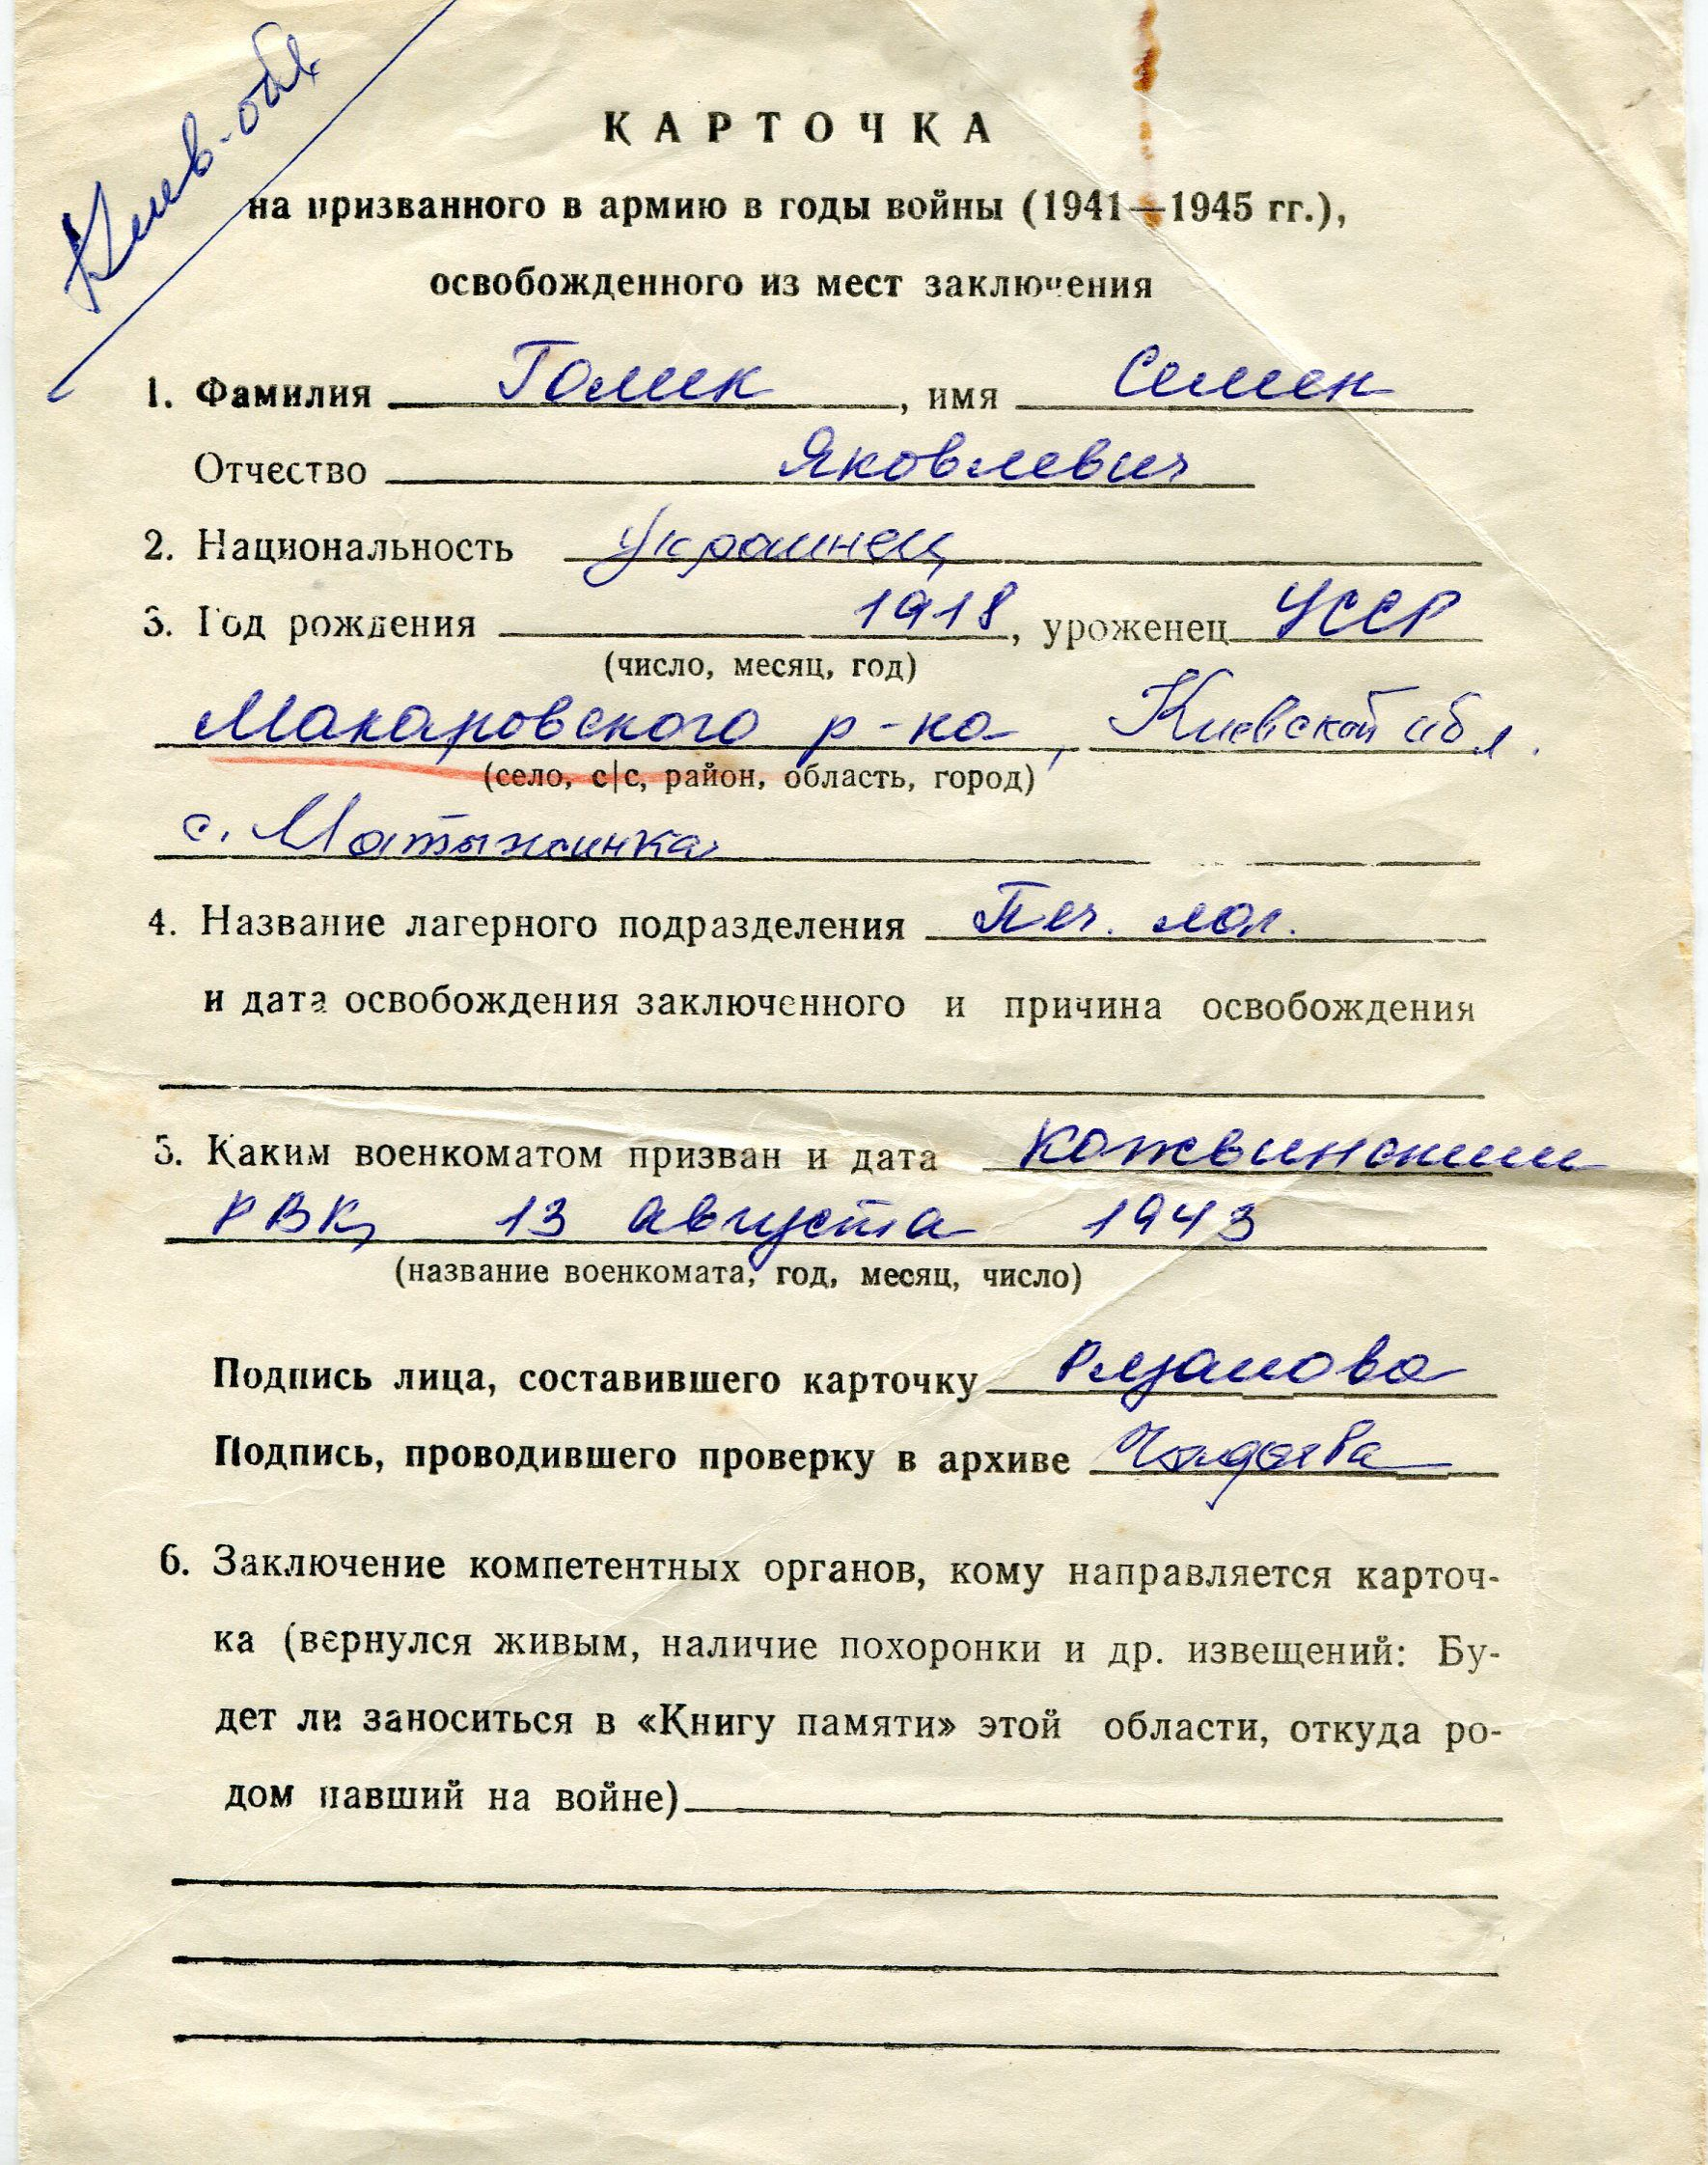 Киев-обл.
КАРТОЧКА
на призванного в армию в годы войны (1941—1945 гг.),
освобожденного из мест заключения
1. Фамилия Голик, имя Семен
Отчество Яковлевич
2. Национальность Украинец
3. Год рождения 1918, уроженец УССР
(число, месяц, год)
Макаровского р-на, Киевской обл.
(село, с|с, район, область, город)
с. Мотыжинка
4. Название лагерного подразделения Печ. лаг.
и дата освобождения заключенного и причина освобождения
5. Каким военкоматом призван и дата Кожвинским
РВК, 13 августа 1943
(название военкомата, год, месяц, число)
Подпись лица, составившего карточку
Подпись, проводившего проверку в архиве
6. Заключение компетентных органов, кому направляется карточ-
ка (вернулся живым, наличие похоронки и др. извещений: Бу-
дет ли заноситься в «Книгу памяти» этой области, откуда ро-
дом павший на войне)